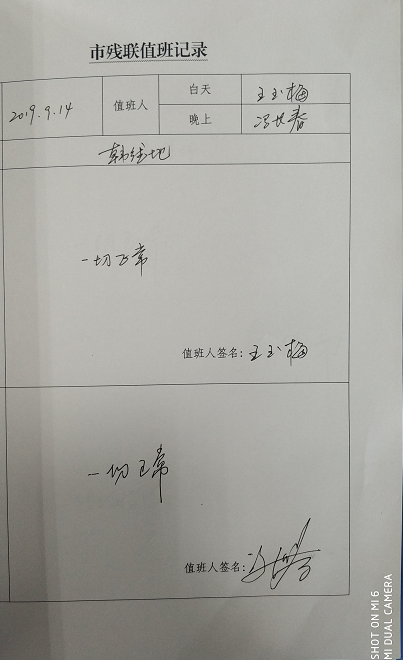 市残联值班记录
2019.9.14 值班人 白天 王玉梅
晚上 冯长春
韩经地
一切正常
值班人签名：王玉梅
一切正常
值班人签名：
SHOT ON MI 6
MI DUAL CAMERA